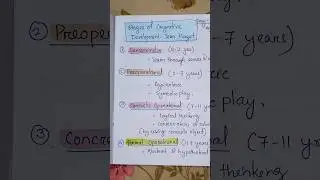 Stages of Cognitive
Development- Jean Piaget
① Sensorimotor (0-2 yrs)
- learn through senses &
② Preoperational (2-7 years)
- Egocentrism
- Symbolic play.
③ Concrete Operational (7-11
- Logical thinking
- conservation of
(by using concrete object)
④ Formal Operational (11+ years
- Abstract & hypothetical
② Preoper
- 7 years)
play.
③ Concre
(7-11 years)
thinking